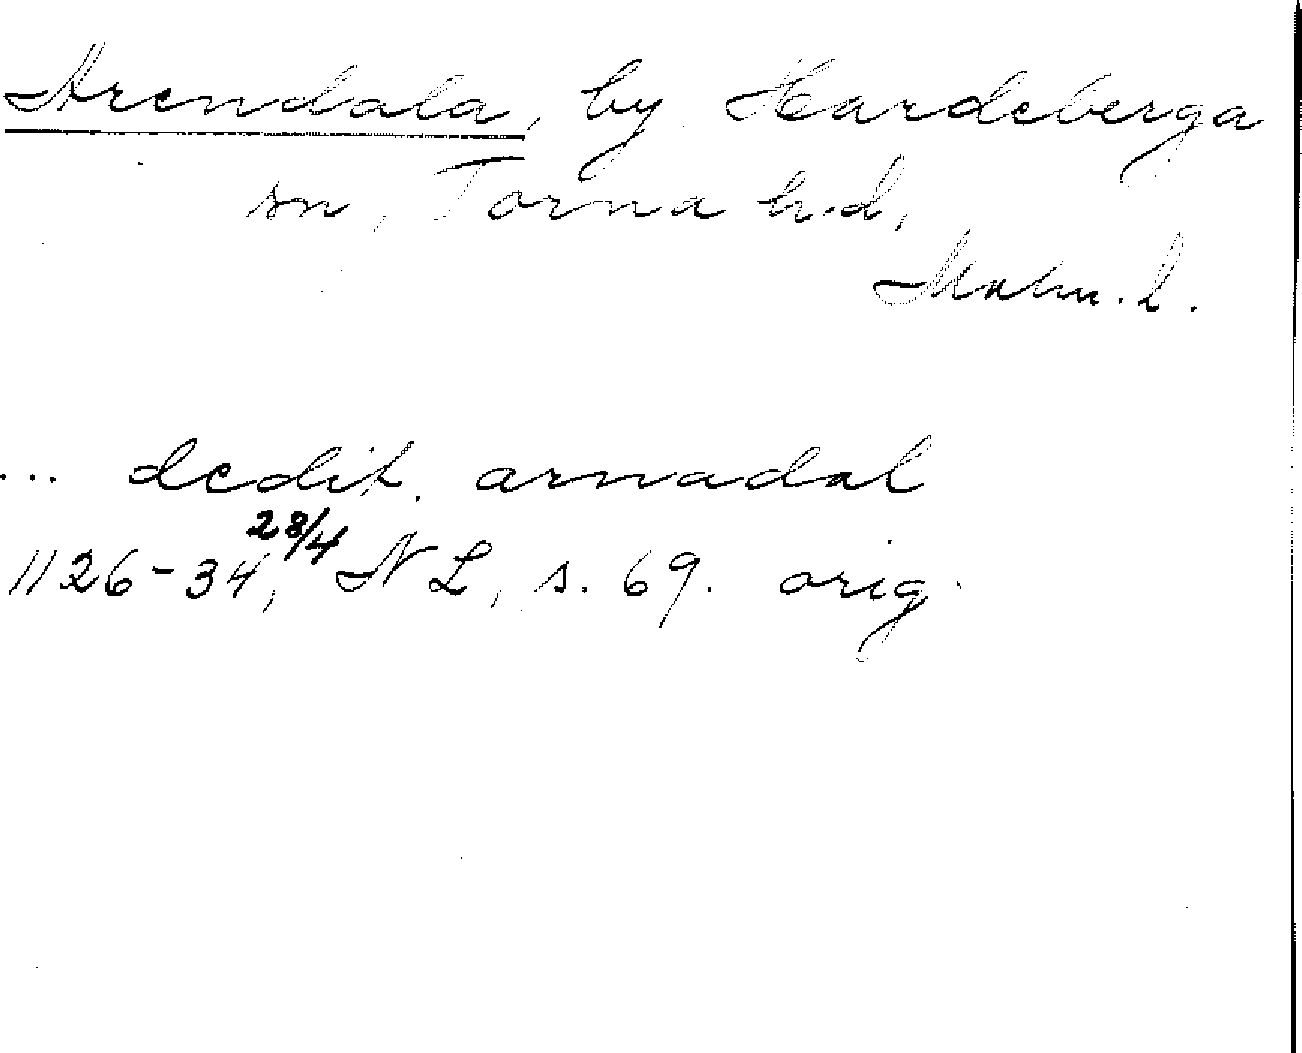 Arendala, by Hardeberga
sn, Torna h.d,
Malm. l.
... dedit. arnadal
28/4
1126-34, NL, s. 69. orig.